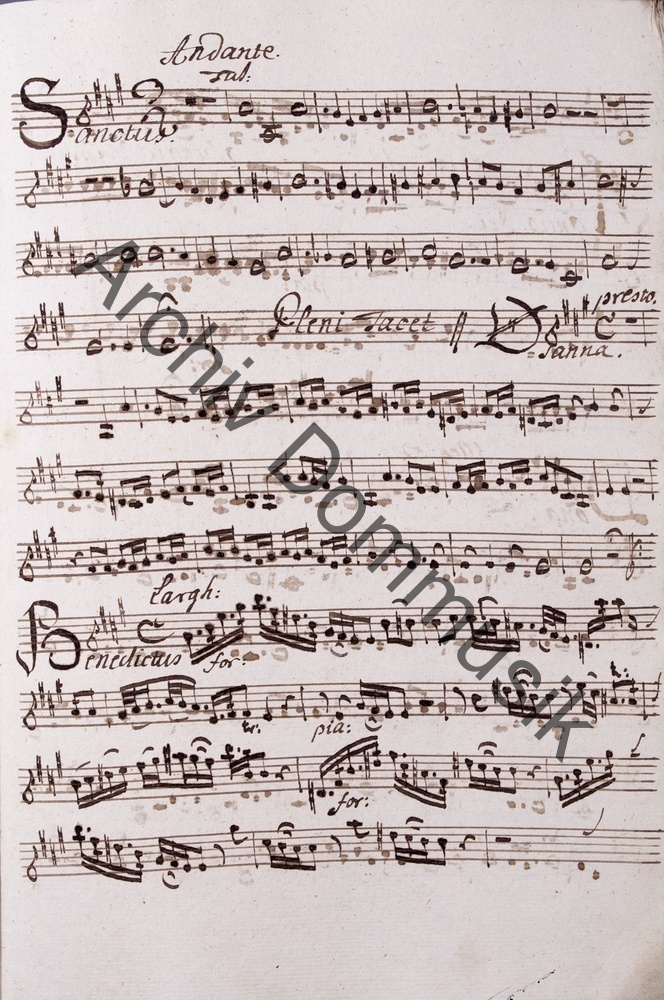 Andante.
Sanctus.
Pleni tacet
presto.
Osanna.
Largh:
Benedictus for:
tr:
tr:
pia:
for:
Archiv Dommusik